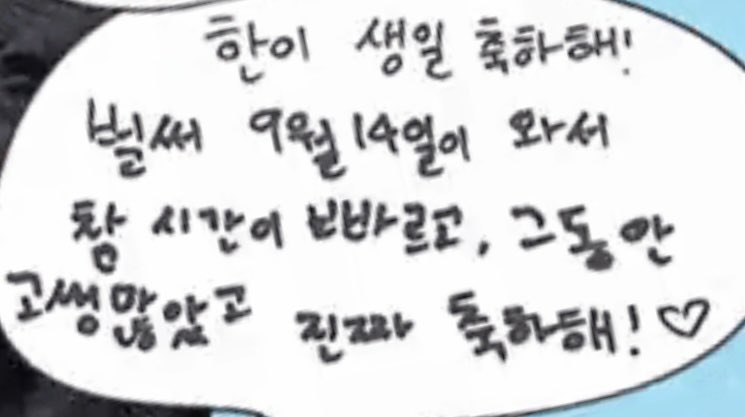 한이 생일 축하해!
벌써 9월 14일이 와서
참 시간이 빠르고, 그동안
고생많았고 진짜 축하해! ♡